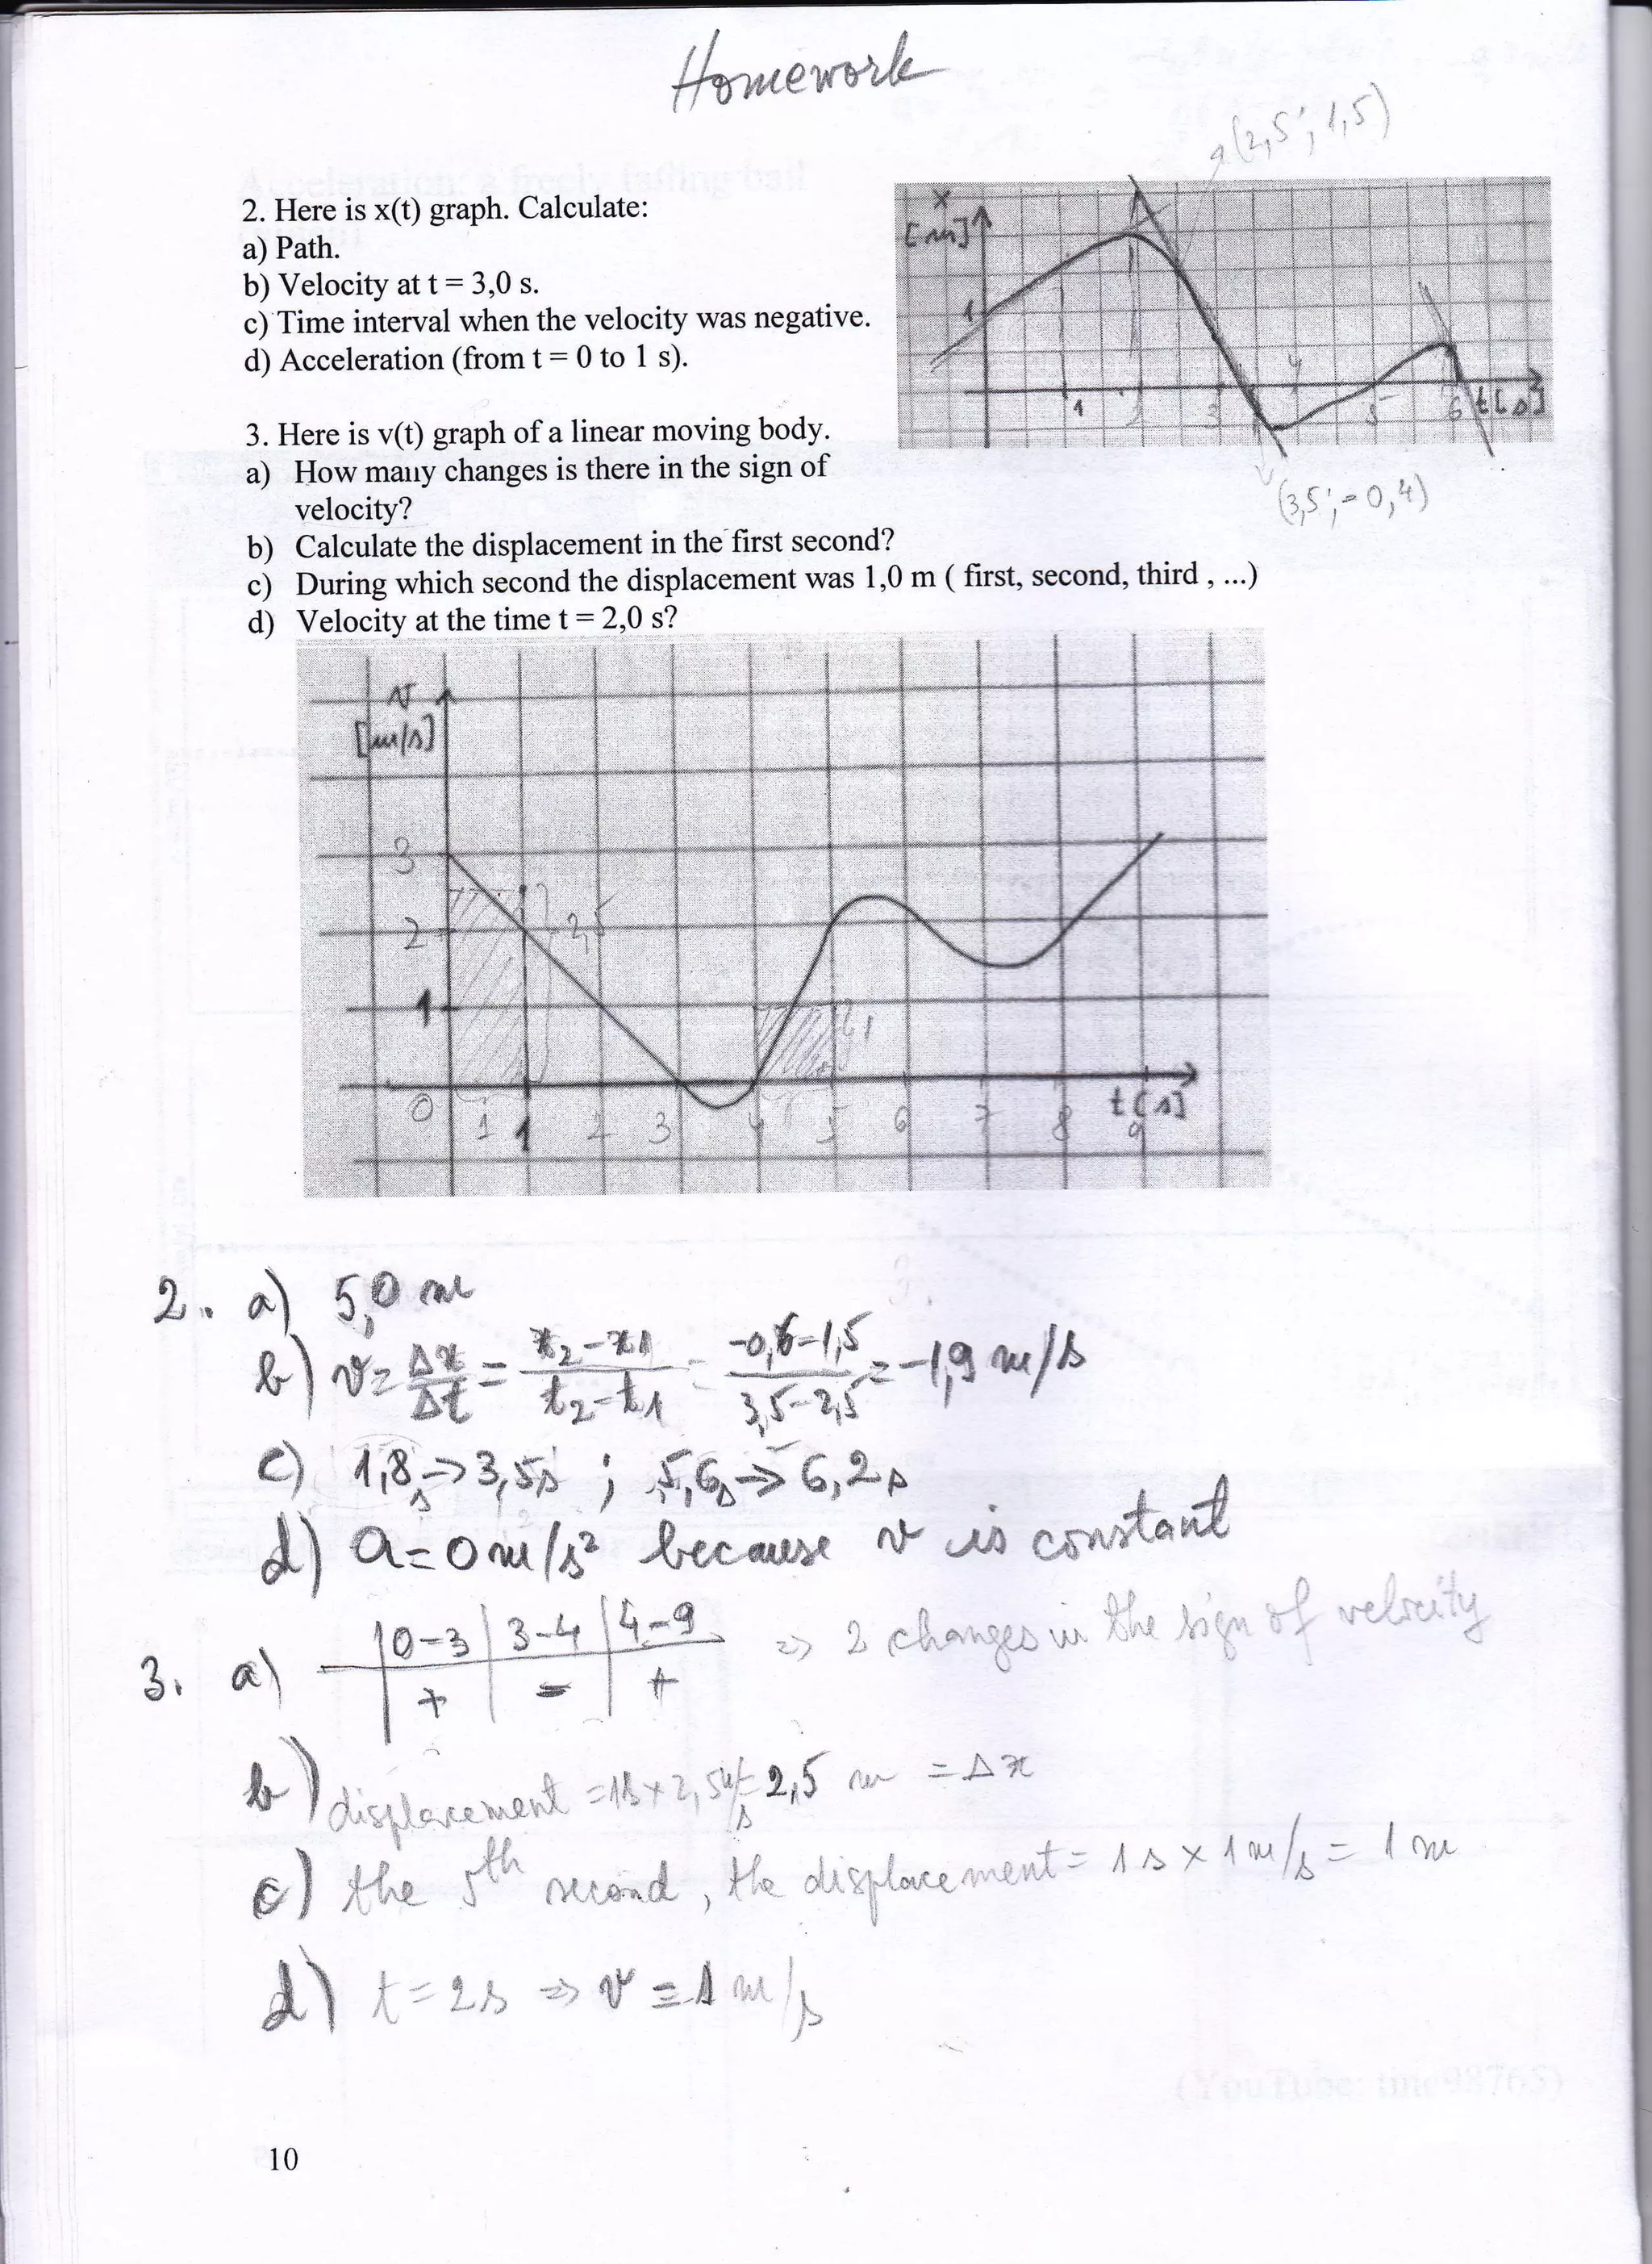 Homework
(2,5; 1,5)
2. Here is x(t) graph. Calculate:
a) Path.
b) Velocity at t = 3,0 s.
c) Time interval when the velocity was negative.
d) Acceleration (from t = 0 to 1 s).
x
[m]
1
1 2 3 4 5 6 t[s]
(3,5; -0,4)
3. Here is v(t) graph of a linear moving body.
a) How many changes is there in the sign of
velocity?
b) Calculate the displacement in the first second?
c) During which second the displacement was 1,0 m ( first, second, third , ...)
d) Velocity at the time t = 2,0 s?
v
[m/s]
3
2 2,5
1 1
0 1 1 2 3 4 5 6 7 8 9 t[s]
2. a) 5,0 m
b) v = Δx/Δt = x2-x1/t2-t1 = -0,4-1,5/3,5-2,5 = -1,9 m/s
c) 1,8s -> 3,5s ; 5,6s -> 6,2s
d) a = 0 m/s² because v is constant
3. a) 0-3 | 3-4 | 4-9 => 2 changes in the sign of velocity
+ | - | +
b) displacement = 1s x 2,5 m/s = 2,5 m = Δx
c) the 5th second, the displacement = 1s x 1 m/s = 1 m
d) t = 2s => v = 1 m/s
10